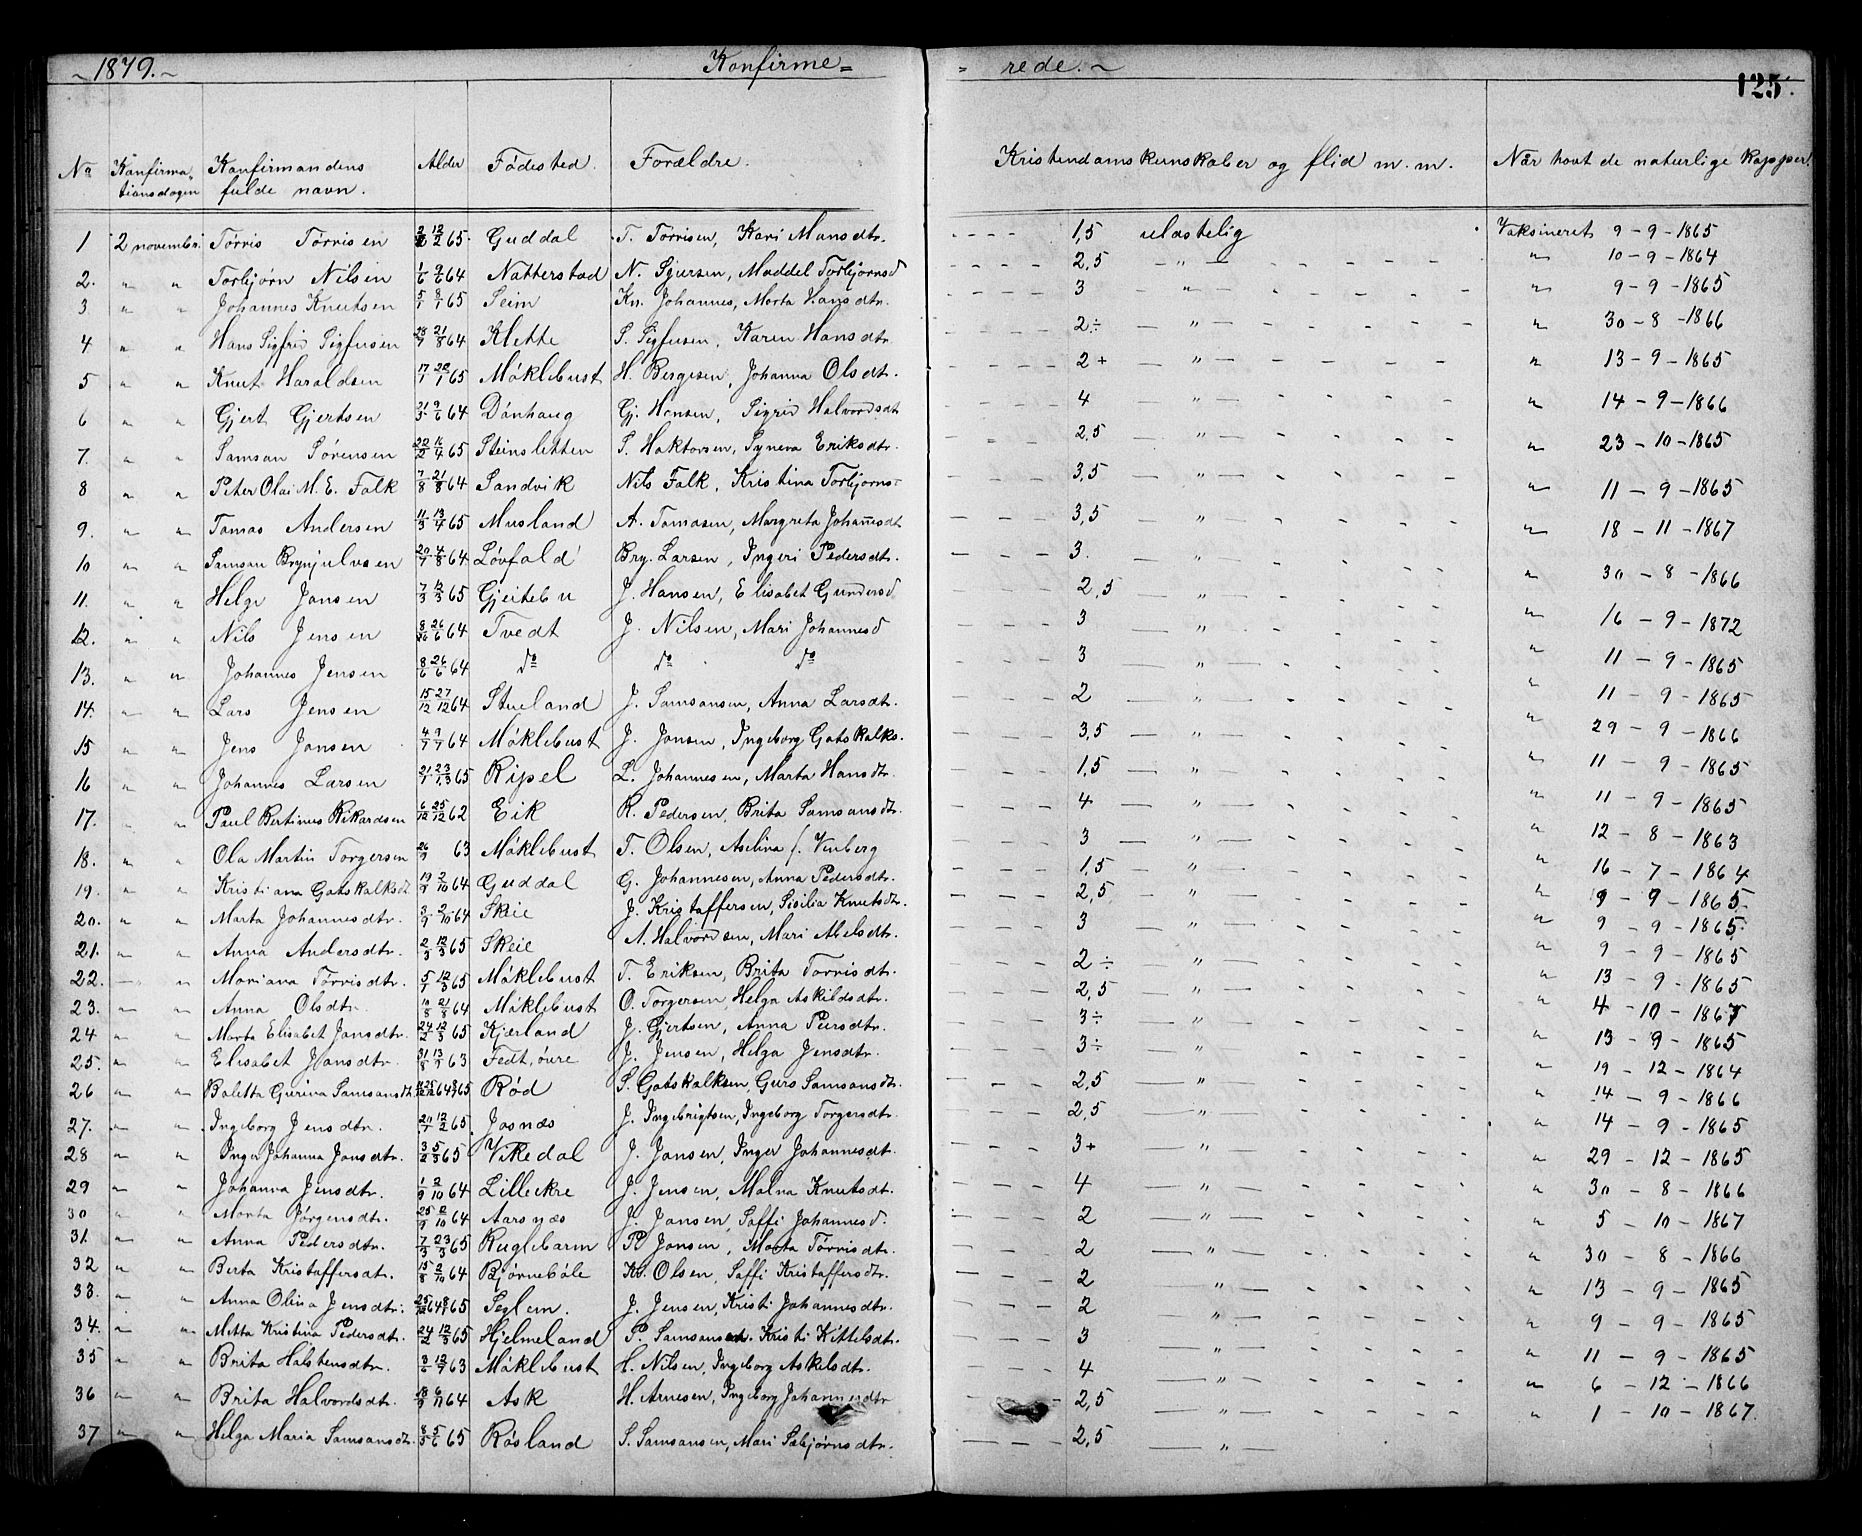 ~ 1879. ~ Konfirme= = rede. ~ 125.
No Konfirmationsdagen Konfirmandens fulde navn. Alder Födested. Forældre. Kristendomskunskaber og flid m. m. Når havt de naturlige kopper.
1 2 november. Tørris Tørrisen 65. Guddal T. Tørrisen, Kari Mansdtr. 1,5 ulastelig Vaksineret 9-9-1865
2. " " Torbjørn Nilsen 1/6 9/6 64 Natterstad N. Sjursen, Maddel Torbjørnsd 2,5 " " 10-9-1864
3 " " Johannes Knutsen 5/1 8/1 65 Seim Kn. Johannes, Marta Hansdtr. 3 " " 9-9-1865
4 " " Hans Sigfrid Sigfusen 64 Klette S. Sigfusen, Karen Hansdtr 2÷ " " 30-8-1866
5 " " Knut Haraldsen 65 Møklebust H. Bergesen, Johanna Olsdtr. 2+ " " 13-9-1865
6 " " Gjert Gjertsen 64 Dønhaug Gj. Hansen, Sigrid Halvordsdt 4 " " 14-9-1866
7. " " Samson Sørensen 65 Steinsletten S. Haktorsen, Syneva Eriksdtr. 2,5 " " 23-10-1865
8 " " Peter Olai M. E. Falk 7/8 21/8 64 Sandvik Nils Falk, Kristina Torbjorns- 3,5 " " 11-9-1865
9. " " Tomas Andersen 65 Musland A. Tomasen, Margreta Johannesdt 3,5 " " 18-11-1867
10 " " Samson Brynjulvsen 64 Løvfald Bry. Larsen, Ingeri Pedersdtr. 3. " " 30-8-1866
11. " " Helge Jansen 65 Gjeitebu J. Hansen, Elisabet Gundersd 2,5 " " 16-9-1872
12. " " Nils Jensen 64 Tvedt J. Nilsen, Mari Johannesd 3 " " 11-9-1865
13. " " Johannes Jensen 8/6 26/6 64 do do do 3 " " 11-9-1865
14. " " Lars Jensen 15/12 27/12 64 Stueland J. Samsonsen, Anna Larsdt. 2 " " 29-9-1866
15 " " Jens Jonsen 64 Møklebust J. Jonsen, Ingeborg Gotskalks. 3,5 " " 11-9-1865
16 " " Johannes Larsen 65 Ripel L. Johannesen, Marta Hansdtr 1,5 " " 11-9-1865
17. " " Paul Bertinus Rikardsen 6/12 25/12 62 Eik R. Pedersen, Brita Samsonsdtr. 4 " " 12-8-1863
18. " " Ola Martin Torgersen 63 Møklebust T. Olsen, Aselina f. Vinberg 3 " " 16-7-1864
19. " " Kristiana Gotskalksdt 64 Guddal G. Johannesen, Anna Pedersdtr. 1,5 " " 9-9-1865
20. " " Marta Johannesdtr. 64 Skeie J. Kristaffersen, Sisilia Knutsdtr. 2,5 " " 9-9-1865
21. " " Anna Andersdtr. 65 Skeie A. Halvordsen, Mari Abelsdtr. 3 " " 9-9-1865
22. " " Mariana Tørrisdtr. 65 Møklebust T. Eriksen, Brita Torrisdtr. 2÷ " " 13-9-1865
23. " " Anna Olsdtr. 64 Møklebust O. Torgersen, Helga Askildsdtr. 2,5 " " 4-10-1867
24 " " Marta Elisabet Jonsdtr. 65 Kjærland J. Gjertsen, Anna Peersdtr. 3÷ " " 13-9-1865
25. " " Elisabet Jansdtr. 63 Fedt, øvre J. Jensen, Helga Jensdtr. 3÷ " " 19-12-1864
26 " " Boletta Gurina Samsonsdt. Rød S. Gotskalksen, Guro Samsonsdtr. 2,5 " " 14-9-1866
27. " " Ingeborg Jensdtr. 65. Josnæs J. Ingebrigtsen, Ingeborg Torgersdtr. 2,5 " " 14-9-1865
28 " " Inger Johanna Jonsdtr. 65 Vikedal J. Jonsen, Inger Johannesdt. 3+ " " 29-12-1865
29 " " Johanna Jensdtr. 64 Lilleekre J. Jensen, Malna Knutsdt. 4 " " 30-8-1866
30 " " Marta Jørgensdtr. 64 Aarsnæs J. Jansen, Saffi Johannesd. 2 " " 5-10-1867
31. " " Anna Pedersdtr. 65 Kuglebarm P. Jonsen, Marta Tørrisdtr. 2 " " 30-8-1866
32 " " Berta Kristaffersdtr. 64 Bjørnebøle Kr. Olsen, Saffi Kristaffersdtr. 2 " " 13-9-1865
33. " Anna Olina Jensdtr. Seglem. J. Jensen, Kristi Johannesdtr. 2 " " 9-9-1865
34. " " Mitta Kristina Pedersdtr. 65 Hjelmeland P. Samsons. Kristi Kittelsdtr. 3 " " 11-9-1865
35 " " Brita Halstensdtr. 63 Møklebust H. Nilsen, Ingeborg Askelsdtr. 4 " " 6-12-1866
36 " " Brita Halvordsdtr. 64 Ask H. Arnesen, Ingeborg Johannesdtr 2,5 " " 1-10-1867.
37 " " Helga Maria Samsonsdtr. 65 Røsland S. Samsonsen, Mari Sæbjørnsdtr. 2,5 "